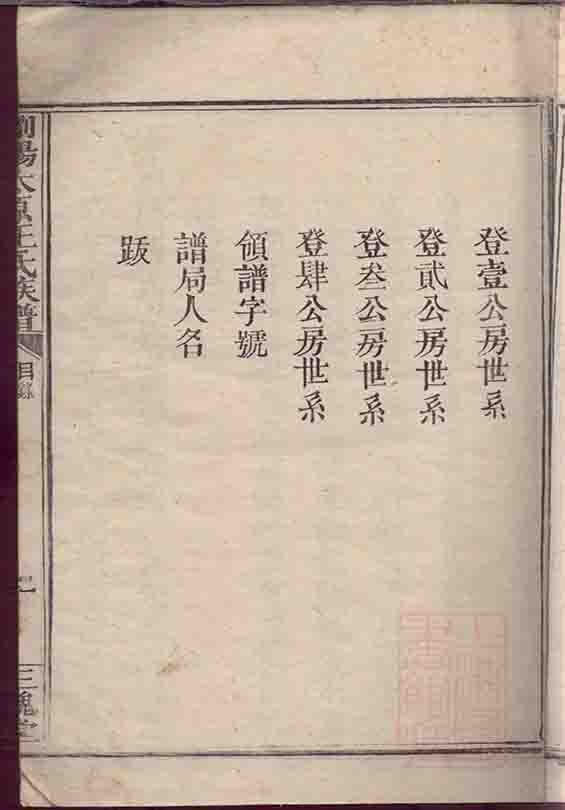 登壹公房世系
登貳公房世系
登叁公房世系
登肆公房世系
領譜字號
譜局人名
跋
瀏陽太原王氏族譜
目錄
三槐堂